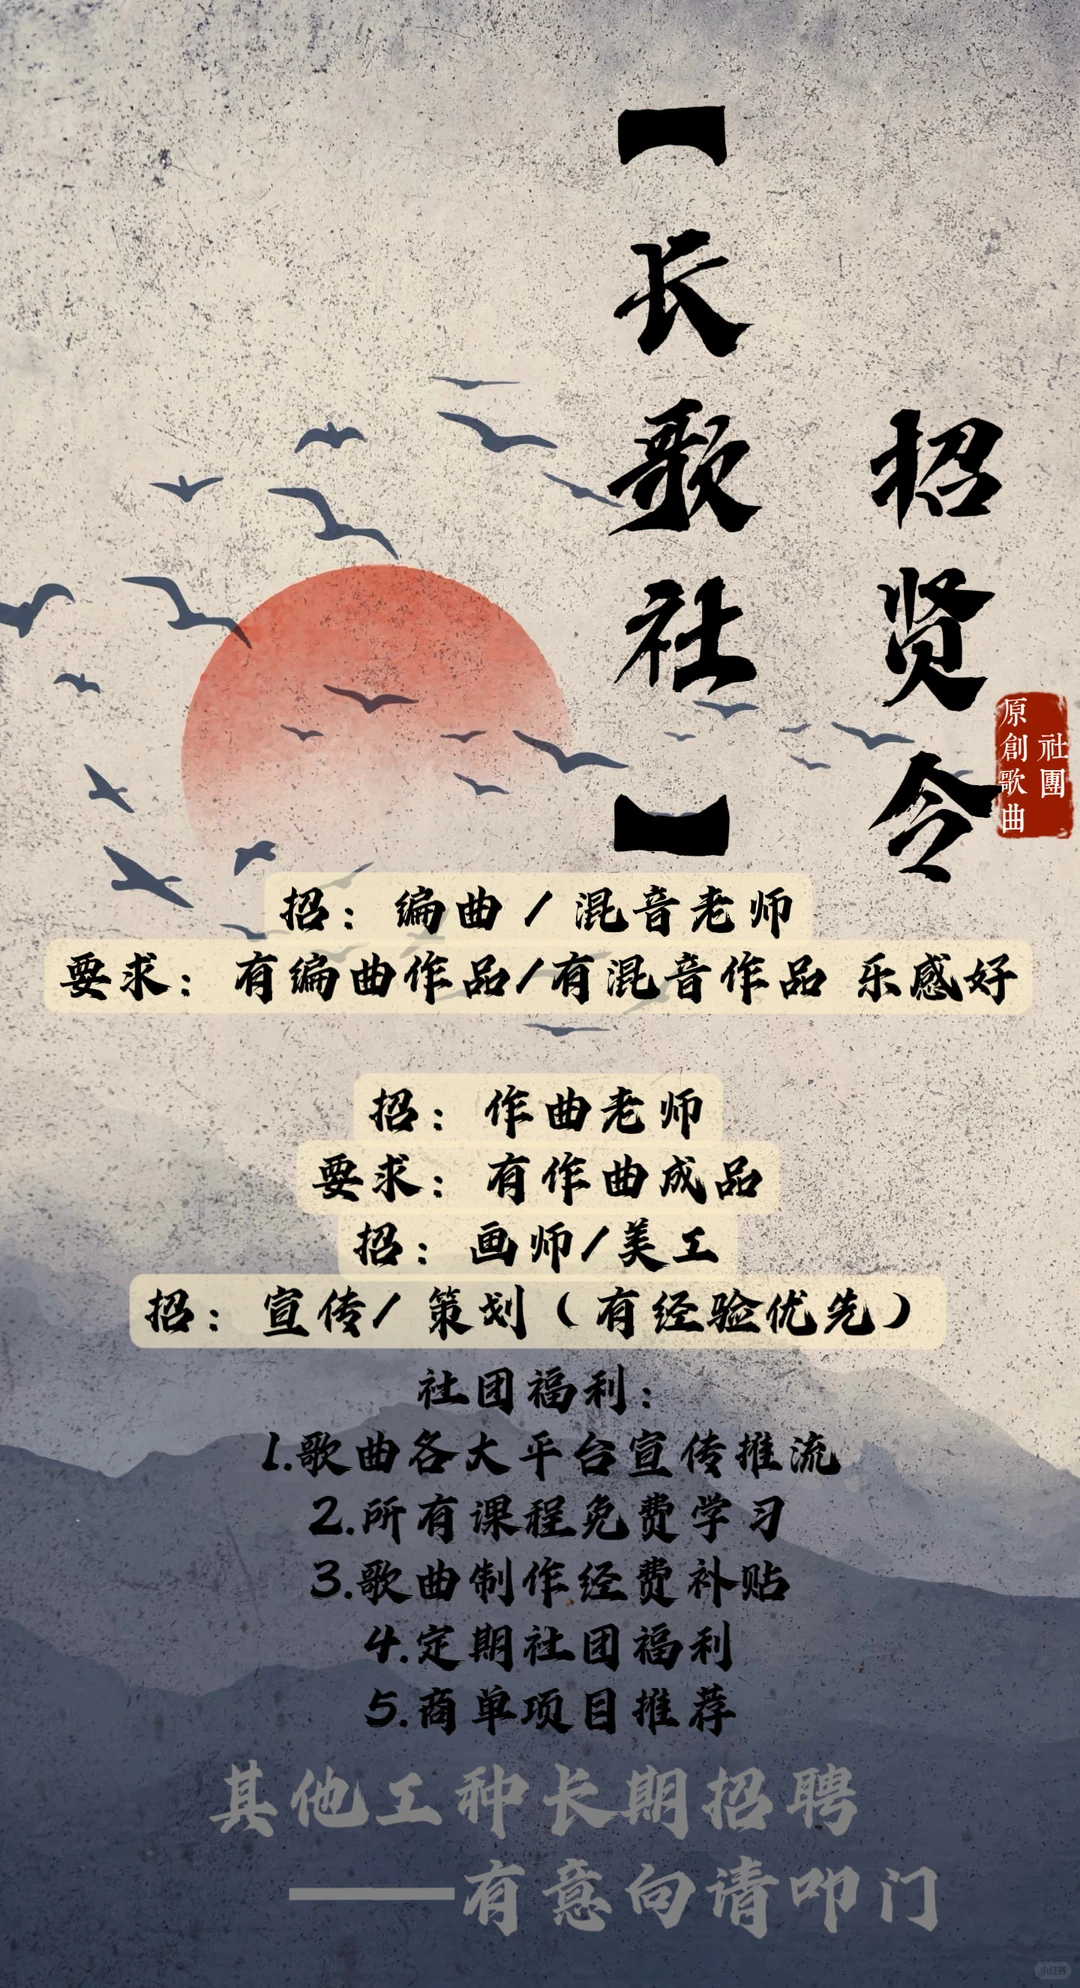 招贤令
【长歌社】
原創歌曲
社團
招：编曲/混音老师
要求：有编曲作品/有混音作品 乐感好
招：作曲老师
要求：有作曲成品
招：画师/美工
招：宣传/策划（有经验优先）
社团福利：
1.歌曲各大平台宣传推流
2.所有课程免费学习
3.歌曲制作经费补贴
4.定期社团福利
5.商单项目推荐
其他工种长期招聘
——有意向请叩门
小红书